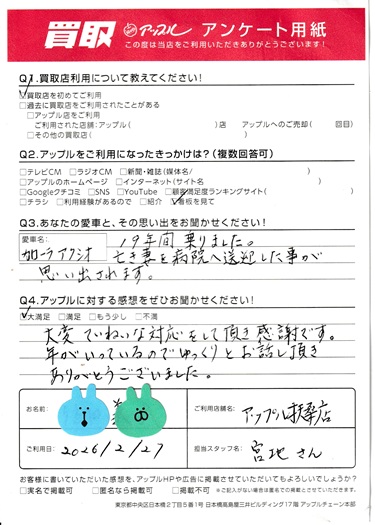 買取 アップル アンケート用紙
この度は当店をご利用いただきありがとうございます!
Q1.買取店利用について教えてください!
☑買取店を初めてご利用
□過去に買取店をご利用されたことがある
□アップル店をご利用
ご利用された店舗:アップル( )店 アップルへのご売却( 回目)
□その他の買取店( )
Q2.アップルをご利用になったきっかけは?(複数回答可)
□テレビCM □ラジオCM □新聞・雑誌(媒体名/ )
□アップルのホームページ □インターネット(サイト名 )
□Googleクチコミ □SNS □YouTube □顧客満足度ランキングサイト( )
□チラシ □利用経験があるので □紹介 ☑看板を見て
Q3.あなたの愛車と、その思い出をお聞かせください!
愛車名:
カローラアクシオ 19年間乗りました。
亡き妻を病院へ送迎した事が
思い出されます。
Q4.アップルに対する感想をぜひお聞かせください!
☑大満足 □満足 □もう少し □不満
大変ていねいな対応をして頂き感謝です。
年がいっているのでゆっくりとお話し頂き
ありがとうございました。
お名前:
ご利用店舗名: アップル扶桑店
ご利用日: 2026/2/27
担当スタッフ名: 宮地さん
お客様に書いていただいた感想を、アップルHPや広告に掲載させていただいてもよろしいでしょうか?
□実名で掲載可 □匿名なら掲載可 □掲載不可
※ご記入がない場合は匿名での掲載とさせていただきます。
東京都中央区日本橋2丁目5番1号 日本橋髙島屋三井ビルディング17階 アップルチェーン本部